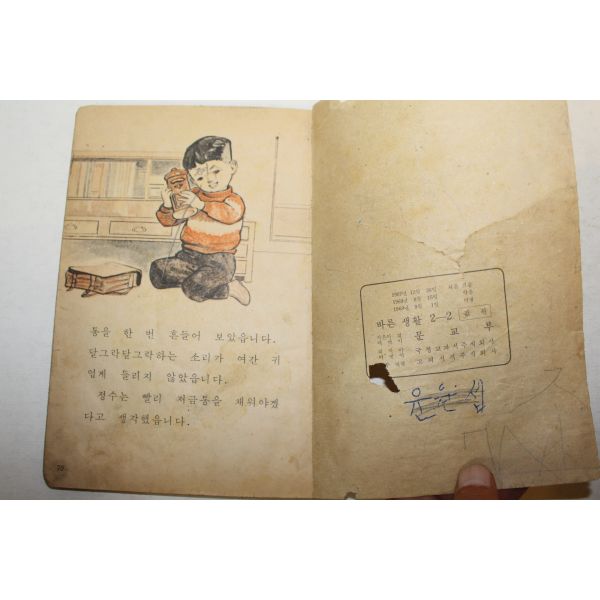 통을 한 번 흔들어 보았읍니다.
달그락달그락하는 소리가 여간 귀
엽게 들리지 않았읍니다.
정수는 빨리 저금통을 채워야겠
다고 생각했읍니다.
70
바른 생활 2—2
문 교 부
국정교과서주식회사
윤은섭